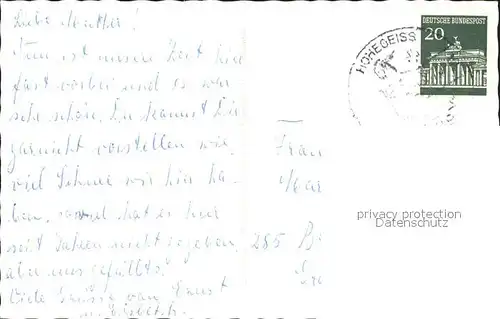 Liebe Mutter!
Nun ist unsere Zeit hier
fast vorbei und es war
sehr schön. Du kannst Dir
garnicht vorstellen wie
viel Schnee wir hier ha-
ben. soviel hat es hier
seit Jahren nicht gegeben.
aber uns gefällts!
Viele Grüße von
HOHEGEISS
DEUTSCHE BUNDESPOST
20
Frau
285
privacy protection
Datenschutz